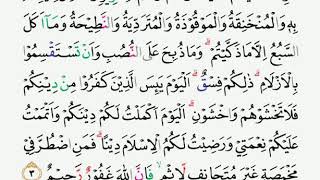 بِهِۦ وَٱلْمُنْخَنِقَةُ وَٱلْمَوْقُوذَةُ وَٱلْمُتَرَدِّيَةُ وَٱلنَّطِيحَةُ وَمَآ أَكَلَ
ٱلسَّبُعُ إِلَّا مَا ذَكَّيْتُمْ وَمَا ذُبِحَ عَلَى ٱلنُّصُبِ وَأَن تَسْتَقْسِمُوا۟
بِٱلْأَزْلَٰمِ ۚ ذَٰلِكُمْ فِسْقٌ ۗ ٱلْيَوْمَ يَئِسَ ٱلَّذِينَ كَفَرُوا۟ مِن دِينِكُمْ
فَلَا تَخْشَوْهُمْ وَٱخْشَوْنِ ۚ ٱلْيَوْمَ أَكْمَلْتُ لَكُمْ دِينَكُمْ وَأَتْمَمْتُ
عَلَيْكُمْ نِعْمَتِى وَرَضِيتُ لَكُمُ ٱلْإِسْلَٰمَ دِينًا ۚ فَمَنِ ٱضْطُرَّ فِى
مَخْمَصَةٍ غَيْرَ مُتَجَانِفٍ لِّإِثْمٍ ۙ فَإِنَّ ٱللَّهَ غَفُورٌ رَّحِيمٌ ٣